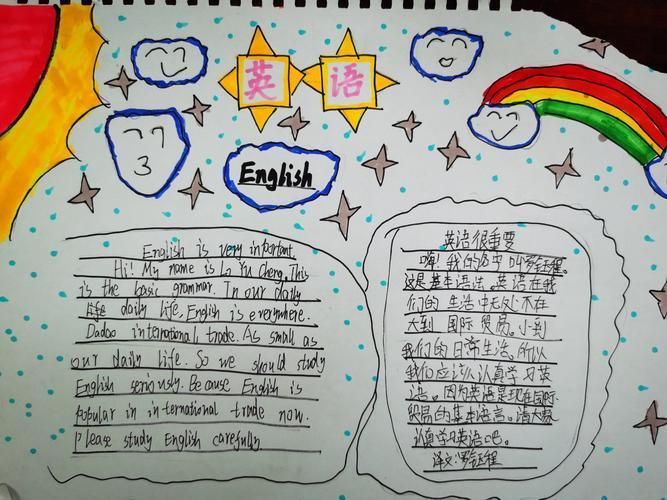 英 语
English
English is very important
Hi! My name is Lo Yu Cheng. This
is the basic grammar. In our daily
life daily life. English is everywhere.
Dadao international trade. As small as
our daily life. So we should study
English seriously. Because English is
popular in international trade now.
Please study English carefully
英语很重要
嗨!我的名中叫罗钰程。
这是基本语法。英语在我
们的生活中无处不在
大到国际贸易。小到
我们的日常生活。所以
我们应该认真学习英
语。因为英语是现在国际
贸易的基本语言。请大家
认真学习英语吧。
译文:罗钰程